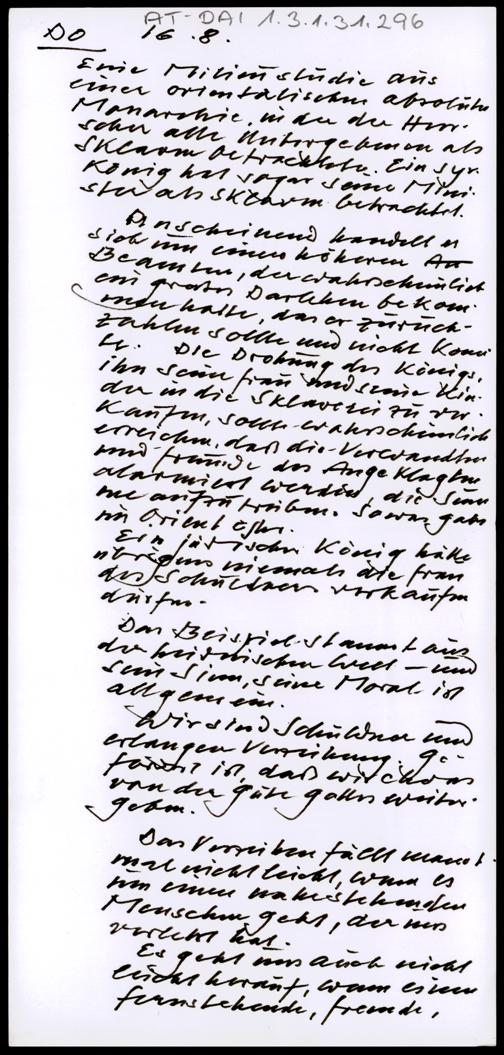 AT-DAI 1.3.1.31.296
DO 16.8.
Eine Milieustudie aus
einer orientalischen absoluten
Monarchie, in der der Herr-
scher alle Untergebenen als
Sklaven betrachtete. Ein syr.
König hat sogar seine Mini-
ster als Sklaven betrachtet.
Anscheinend handelt es
sich um einen höheren
Beamten, der wahrscheinlich
ein großes Darlehen bekom-
men hatte, das er zurück-
zahlen sollte und nicht konn-
te. Die Drohung des Königs,
ihn seine Frau und seine Kin-
der in die Sklaverei zu ver-
kaufen, sollte wahrscheinlich
erreichen, daß die Verwandten
und Freunde des Angeklagten
alarmiert werden, die Sum-
me aufzutreiben. Sowas gabs
im Orient öfter.
Ein jüdischer König hätte
übrigens niemals die Frau
des Schuldners verkaufen
dürfen.
Das Beispiel stammt aus
der heidnischen Welt – und
sein Sinn, seine Moral ist
allgemein.
Wir sind Schuldner und
erlangen Verzeihung. Ge-
fordert ist, daß wir etwas
von der Güte Gottes weiter-
geben.
Das Verzeihen fällt manch-
mal nicht leicht, wenn es
um einen nahestehenden
Menschen geht, der uns
verletzt hat.
Es geht uns auch nicht
leicht herauf, wenn einem
fernstehende, fremde,